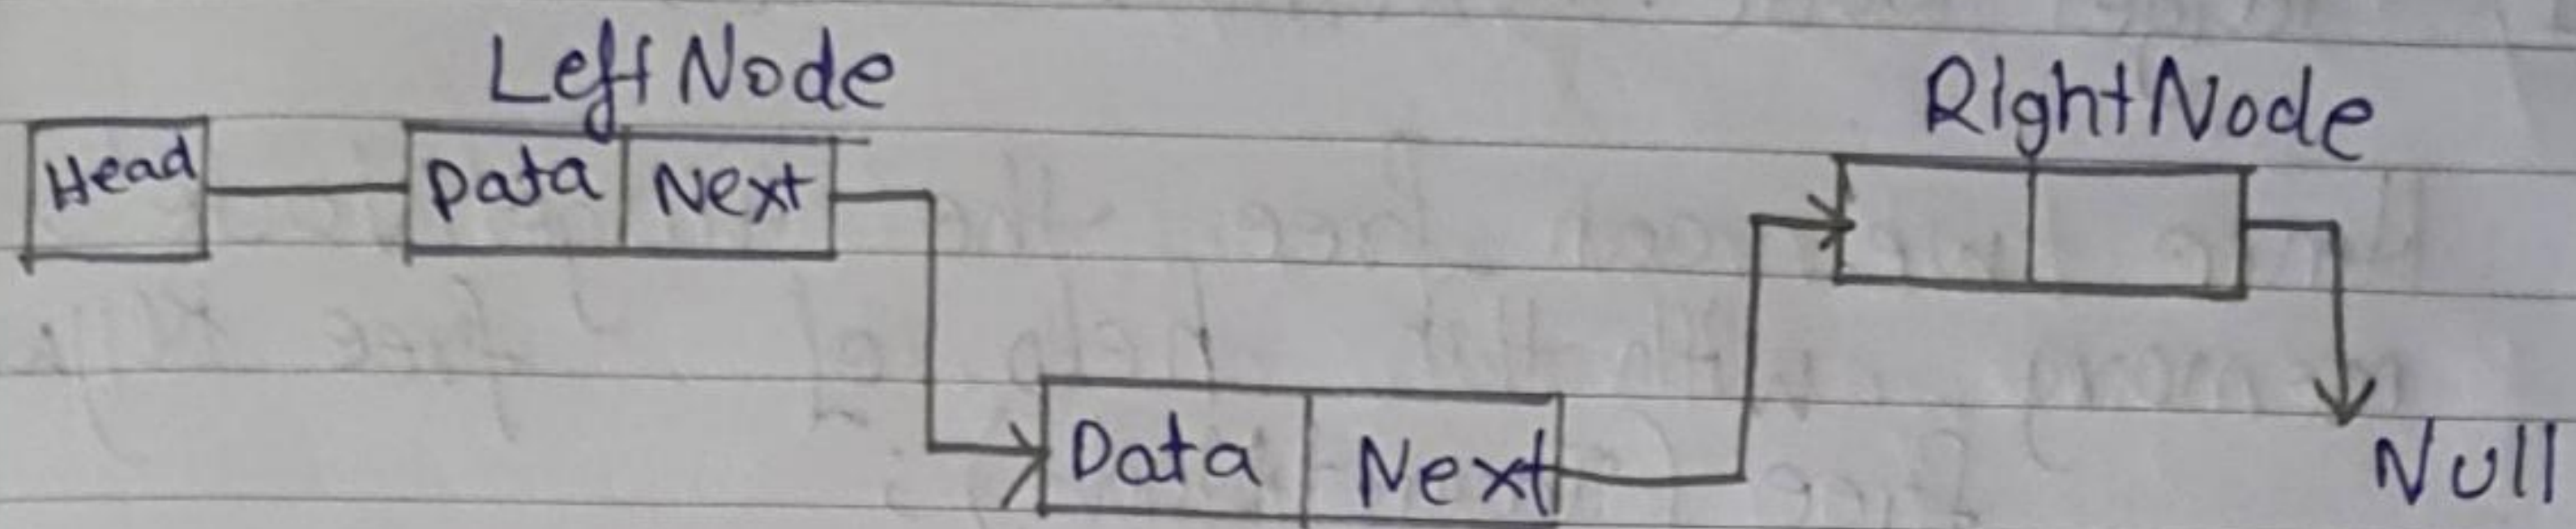 Left Node
Right Node
Head
Data
Next
Data
Next
Null